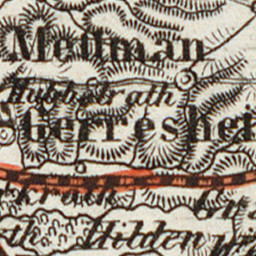 Mettman
Hubbelrath
Gerreshei
krath
Hilden